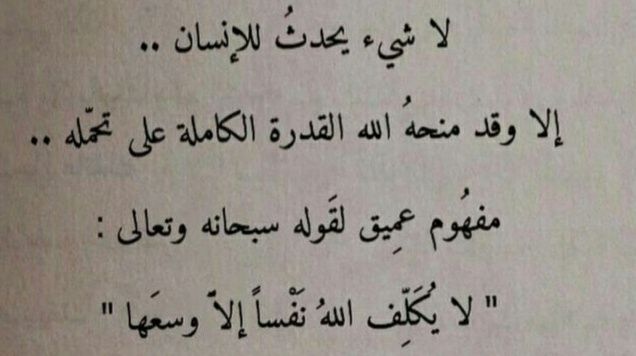 لا شيء يحدثُ للإنسان ..
إلا وقد منحهُ الله القدرة الكاملة على تحمّله ..
مفهُوم عمِيق لقَوله سبحانه وتعالى :
" لا يُكَلِّف اللهُ نَفْساً إلاّ وسعَها "